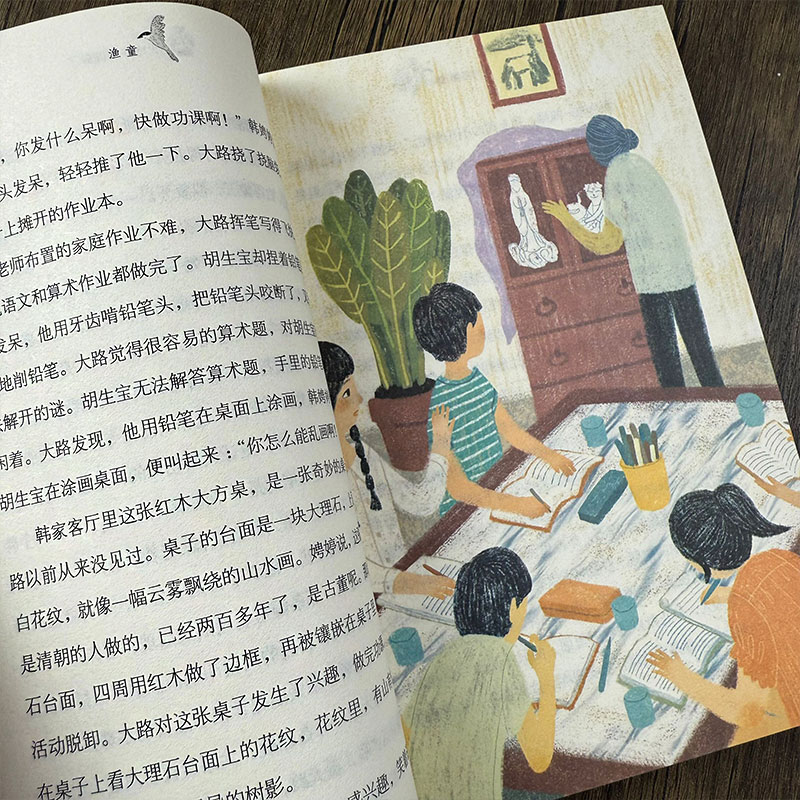 渔童
，你发什么呆啊，快做功课啊！”韩婷
头发呆，轻轻推了他一下。大路挠了挠
上摊开的作业本。
老师布置的家庭作业不难，大路挥笔写得飞
语文和算术作业都做完了。胡生宝却捏着铅笔
发呆，他用牙齿啃铅笔头，把铅笔头咬断了，又
地削铅笔。大路觉得很容易的算术题，对胡生宝
解开的谜。胡生宝无法解答算术题，手里的铅笔
闲着。大路发现，他用铅笔在桌面上涂画，韩娉
胡生宝在涂画桌面，便叫起来：“你怎么能乱画啊
韩家客厅里这张红木大方桌，是一张奇妙的桌
路以前从来没见过。桌子的台面是一块大理石，
白花纹，就像一幅云雾飘绕的山水画。娉婷说，这
是清朝的人做的，已经两百多年了，是古董呢。
石台面，四周用红木做了边框，再被镶嵌在桌子里
活动脱卸。大路对这张桌子发生了兴趣，做完功课
在桌子上看大理石台面上的花纹，花纹里，有山有
的树影。
感兴趣，笑